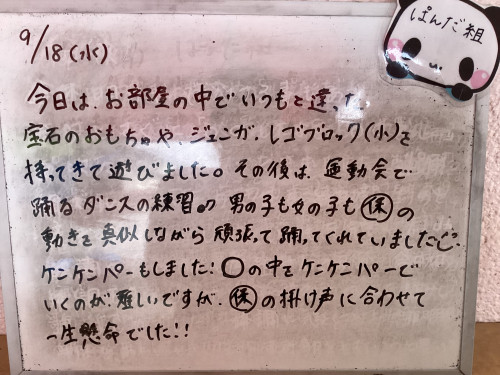 9/18(水)
ぱんだ組
今日は、お部屋の中でいつもと違った
宝石のおもちゃや、ジェンガ、レゴブロック(小)を
持ってきて遊びました。その後は、運動会で
踊るダンスの練習♪ 男の子も女の子も㋭の
動きを真似しながら頑張って踊ってくれていました
ケンケンパーもしました!〇の中をケンケンパーで
いくのが難しいですが、の掛け声に合わせて
一生懸命でした!!